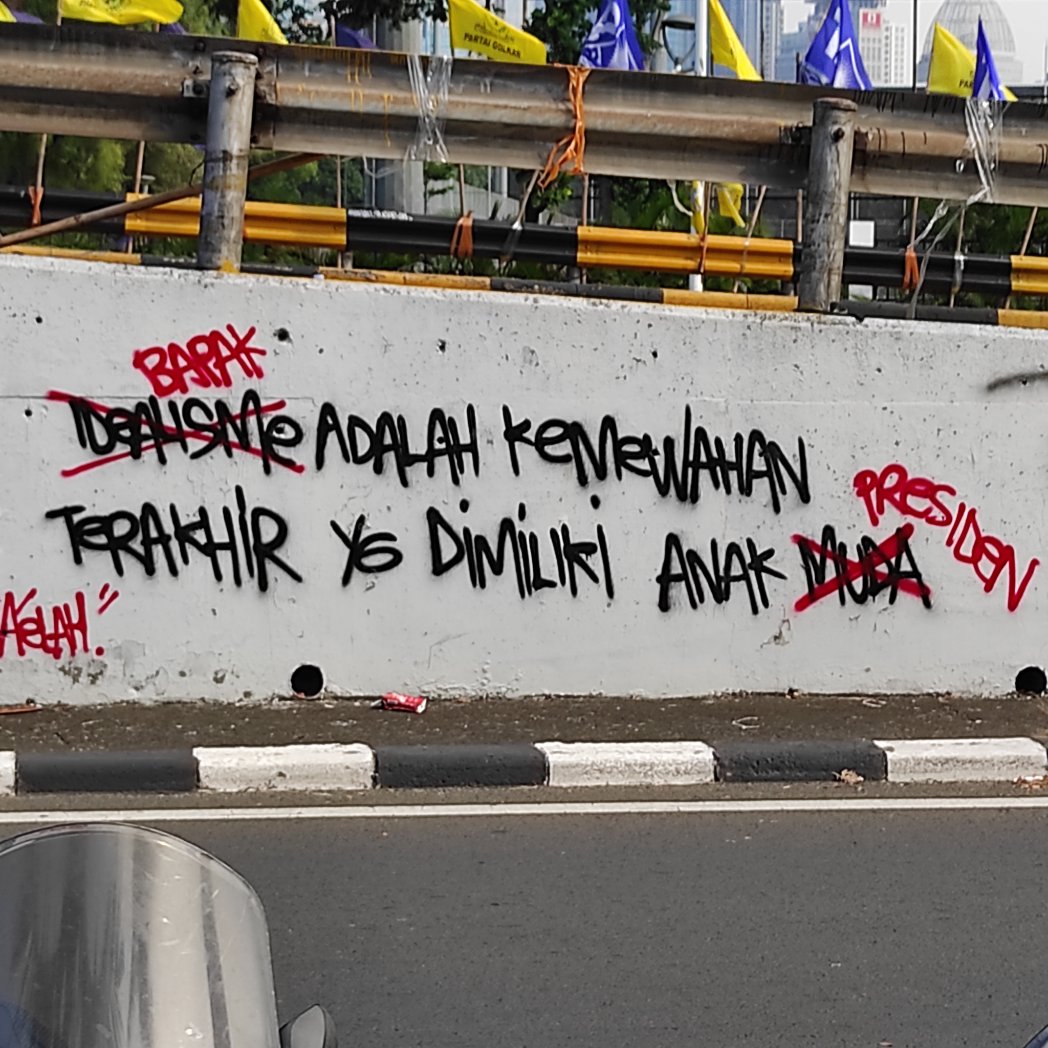 PARTAI GOLKAR
BAPAK
IDEALISME ADALAH KEMEWAHAN
PRESIDEN
TERAKHIR YG DIMILIKI ANAK MUDA
AELAH."